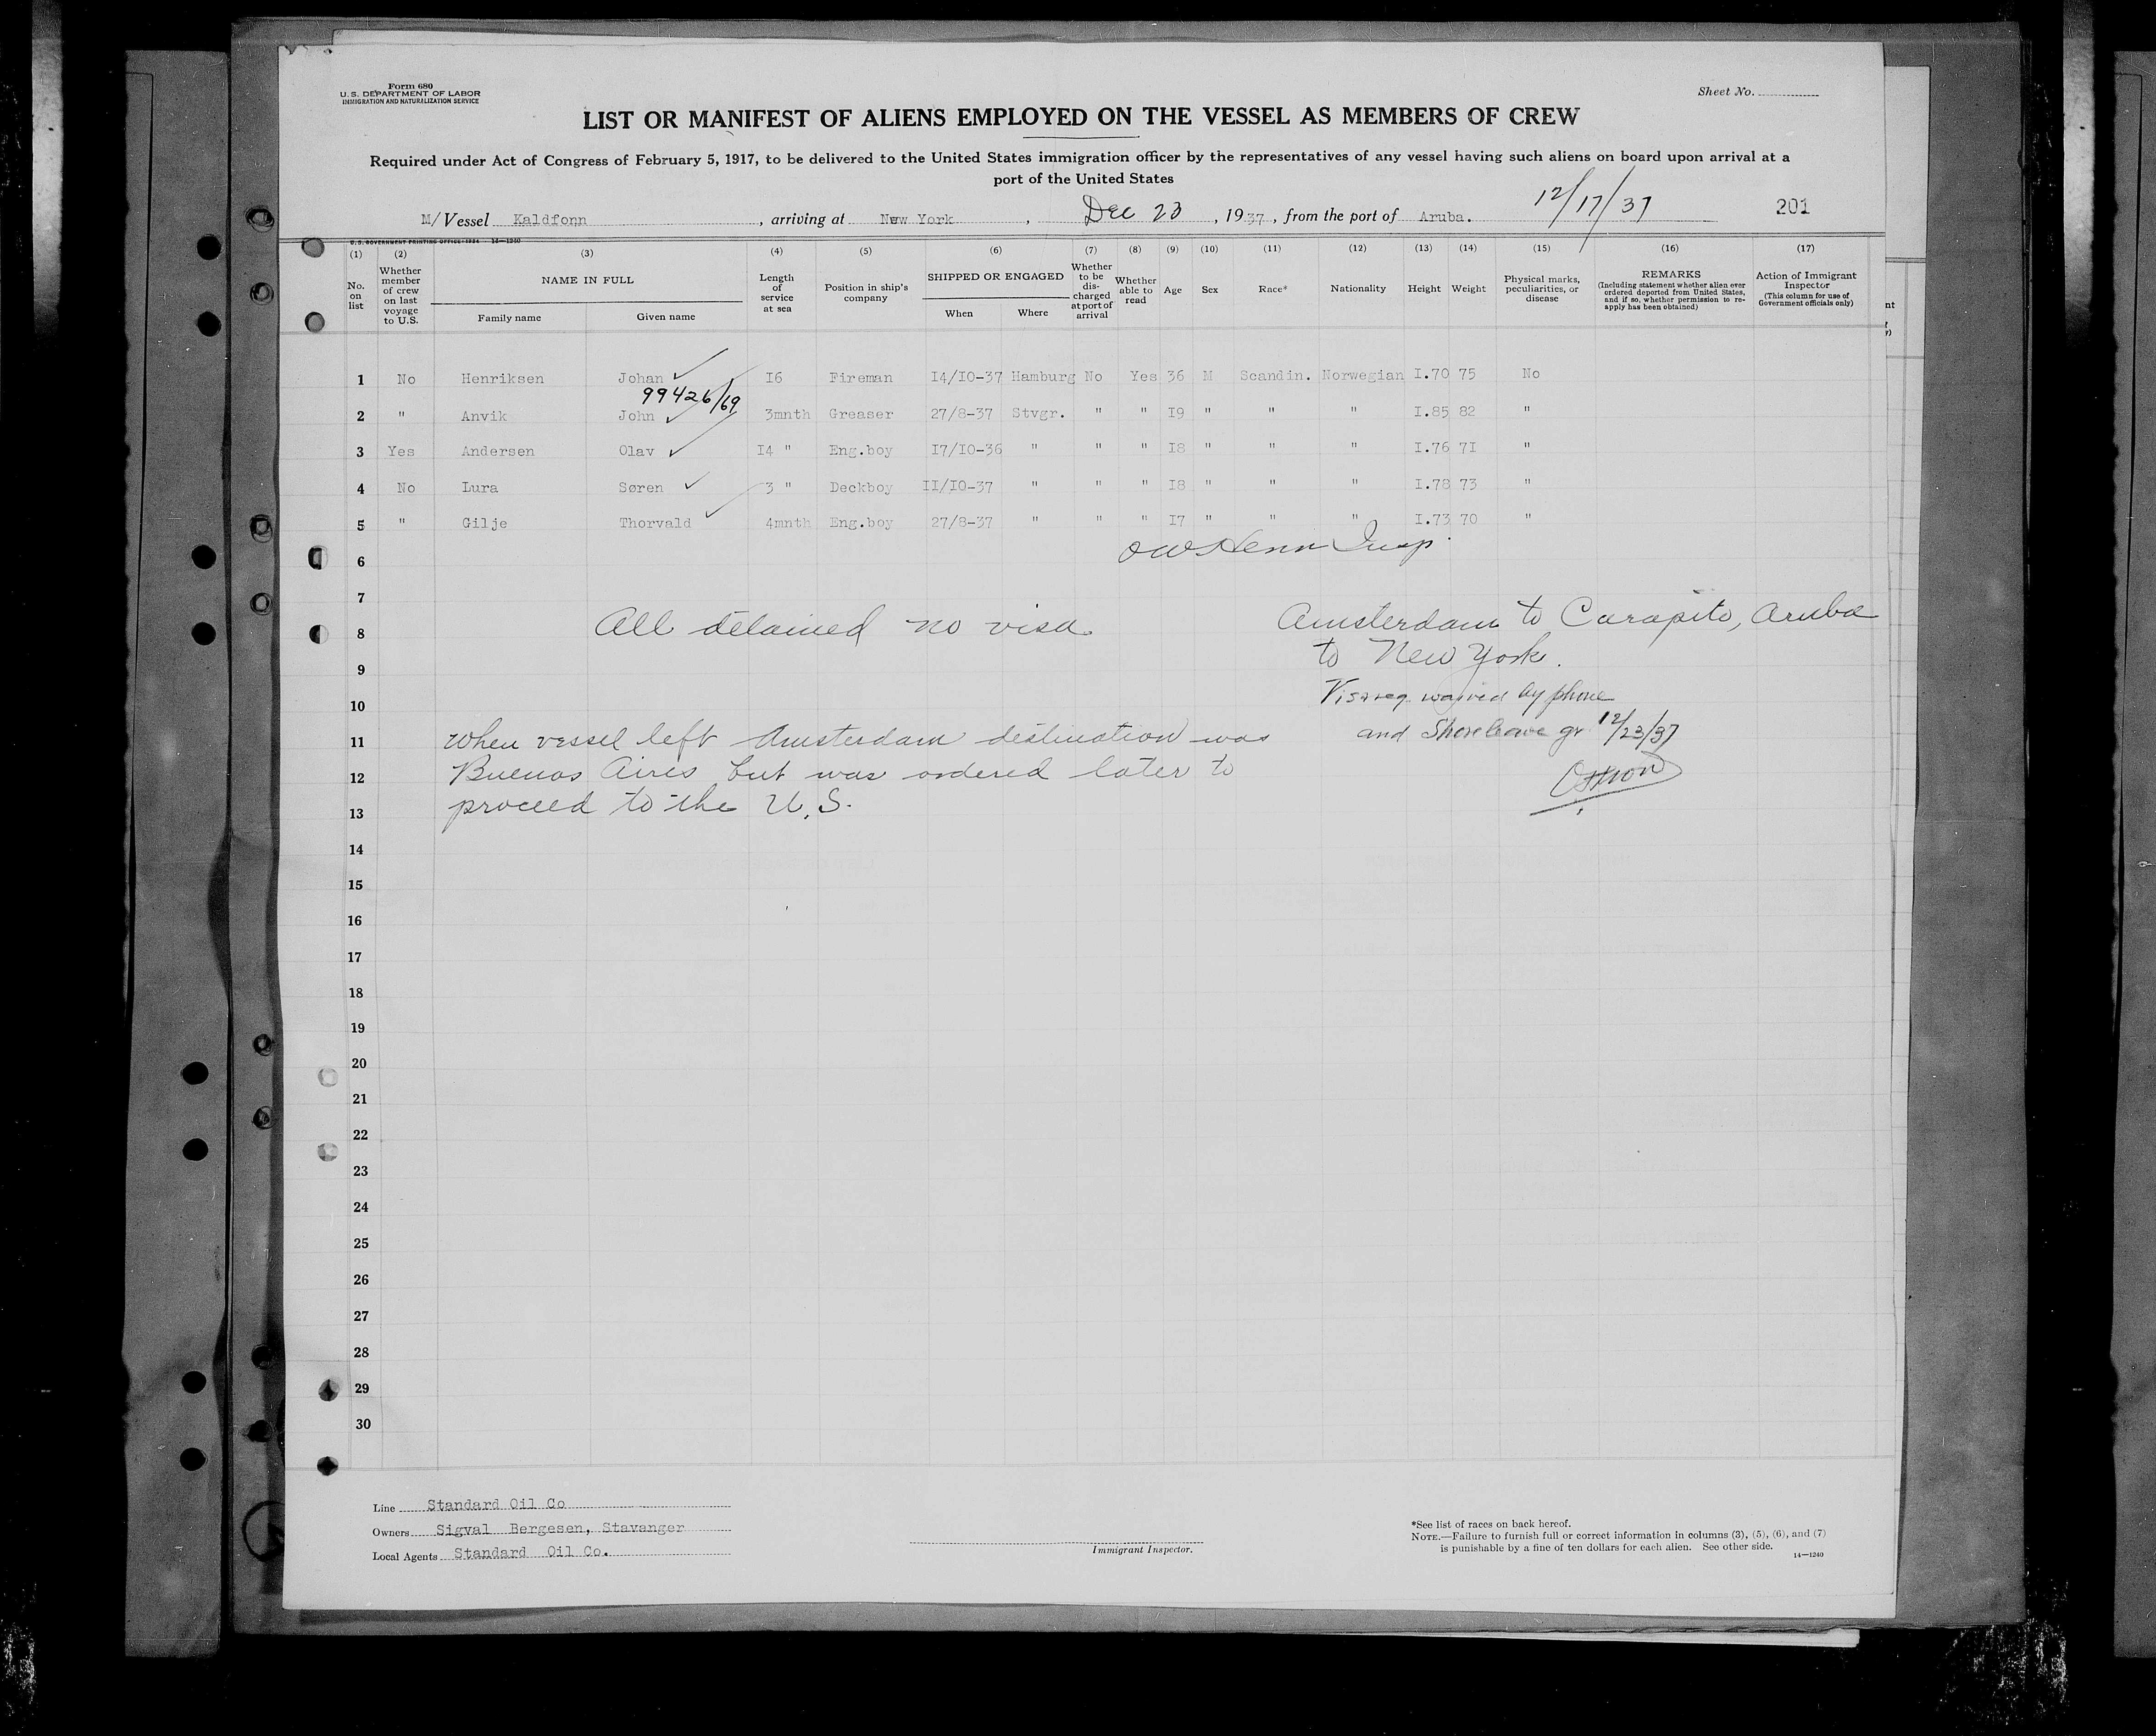 Form 680
U. S. DEPARTMENT OF LABOR
IMMIGRATION AND NATURALIZATION SERVICE
Sheet No.
LIST OR MANIFEST OF ALIENS EMPLOYED ON THE VESSEL AS MEMBERS OF CREW
Required under Act of Congress of February 5, 1917, to be delivered to the United States immigration officer by the representatives of any vessel having such aliens on board upon arrival at a
port of the United States
M/ Vessel Kaldfonn , arriving at New York , Dec 23 , 1937 , from the port of Aruba. 12/17/37 201
U. S. GOVERNMENT PRINTING OFFICE: 1934 14—1240
(1) (2) (3) (4) (5) (6) (7) (8) (9) (10) (11) (12) (13) (14) (15) (16) (17)
No. on list
Whether member of crew on last voyage to U.S.
NAME IN FULL
Family name
Given name
Length of service at sea
Position in ship's company
SHIPPED OR ENGAGED
When
Where
Whether to be discharged at port of arrival
Whether able to read
Age
Sex
Race*
Nationality
Height
Weight
Physical marks, peculiarities, or disease
REMARKS
(Including statement whether alien ever ordered deported from United States, and if so, whether permission to reapply has been obtained)
Action of Immigrant Inspector
(This column for use of Government officials only)
1 No Henriksen Johan I6 Fireman I4/I0-37 Hamburg No Yes 36 M Scandin. Norwegian I.70 75 No
99426/69
2 " Anvik John 3mnth Greaser 27/8-37 Stvgr. " " I9 " " " I.85 82 "
3 Yes Andersen Olav I4 " Eng.boy I7/I0-36 " " " I8 " " " I.76 7I "
4 No Lura Søren 3 " Deckboy II/I0-37 " " " I8 " " " I.78 73 "
5 " Gilje Thorvald 4mnth Eng.boy 27/8-37 " " " I7 " " " I.73 70 "
Insp.
6
7
8
9
10
11
12
13
14
15
16
17
18
19
20
21
22
23
24
25
26
27
28
29
30
All detained no visa
Amsterdam to Carapito, Aruba
to New York.
Visa req. waived by phone
and Shore leave gr 12/23/37
When vessel left Amsterdam destination was
Buenos Aires but was ordered later to
proceed to the U.S.
Line Standard Oil Co
Owners Sigval Bergesen, Stavanger
Local Agents Standard Oil Co.
Immigrant Inspector.
*See list of races on back hereof.
NOTE.—Failure to furnish full or correct information in columns (3), (5), (6), and (7)
is punishable by a fine of ten dollars for each alien. See other side.
14—1240